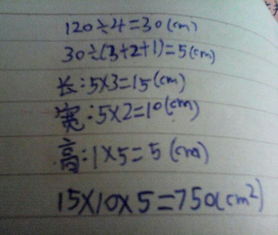 120÷4=30(cm)
30÷(3+2+1)=5(cm)
长:5×3=15(cm)
宽:5×2=10(cm)
高:1×5=5(cm)
15×10×5=750(cm²)